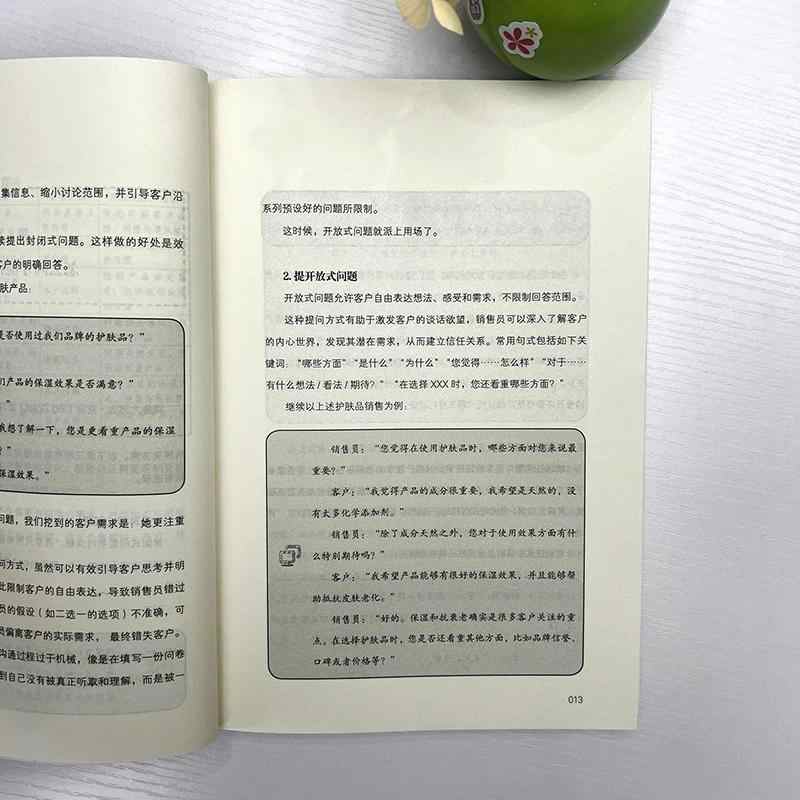 集信息、缩小讨论范围，并引导客户沿
续提出封闭式问题。这样做的好处是效
客户的明确回答。
肤产品：
是否使用过我们品牌的护肤品？”
们产品的保湿效果是否满意？”
”
我想了解一下，您是更看重产品的保湿
？”
保湿效果。”
问题，我们挖到的客户需求是：她更注重
问方式，虽然可以有效引导客户思考并明
此限制客户的自由表达，导致销售员错过
员的假设（如二选一的选项）不准确，可
员偏离客户的实际需求，最终错失客户。
沟通过程过于机械，像是在填写一份问卷
到自己没有被真正听取和理解，而是被一
系列预设好的问题所限制。
这时候，开放式问题就派上用场了。
2. 提开放式问题
开放式问题允许客户自由表达想法、感受和需求，不限制回答范围。
这种提问方式有助于激发客户的谈话欲望，销售员可以深入了解客户
的内心世界，发现其潜在需求，从而建立信任关系。常用句式包括如下关
键词：“哪些方面”“是什么”“为什么”“您觉得……怎么样”“对于……
有什么想法 / 看法 / 期待？”“在选择 XXX 时，您还看重哪些方面？”
继续以上述护肤品销售为例：
销售员：“您觉得在使用护肤品时，哪些方面对您来说最
重要？”
客户：“我觉得产品的成分很重要，我希望是天然的，没
有太多化学添加剂。”
销售员：“除了成分天然之外，您对于使用效果方面有什
么特别期待吗？”
客户：“我希望产品能够有很好的保湿效果，并且能够帮
助抵抗皮肤老化。”
销售员：“好的。保湿和抗衰老确实是很多客户关注的重
点。在选择护肤品时，您是否还看重其他方面，比如品牌信誉、
口碑或者价格等？”
013